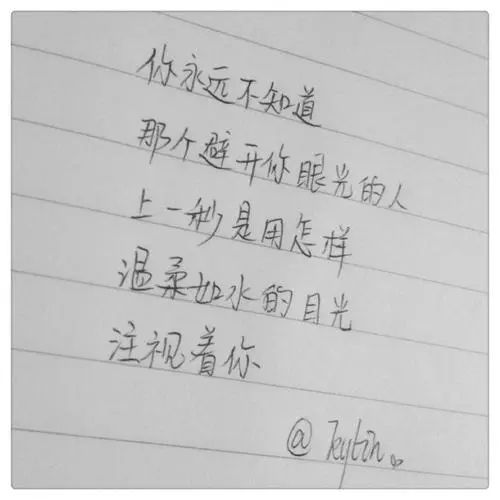 你永远不知道
那个避开你眼光的人
上一秒是用怎样
温柔如水的目光
注视着你
@Teytin。